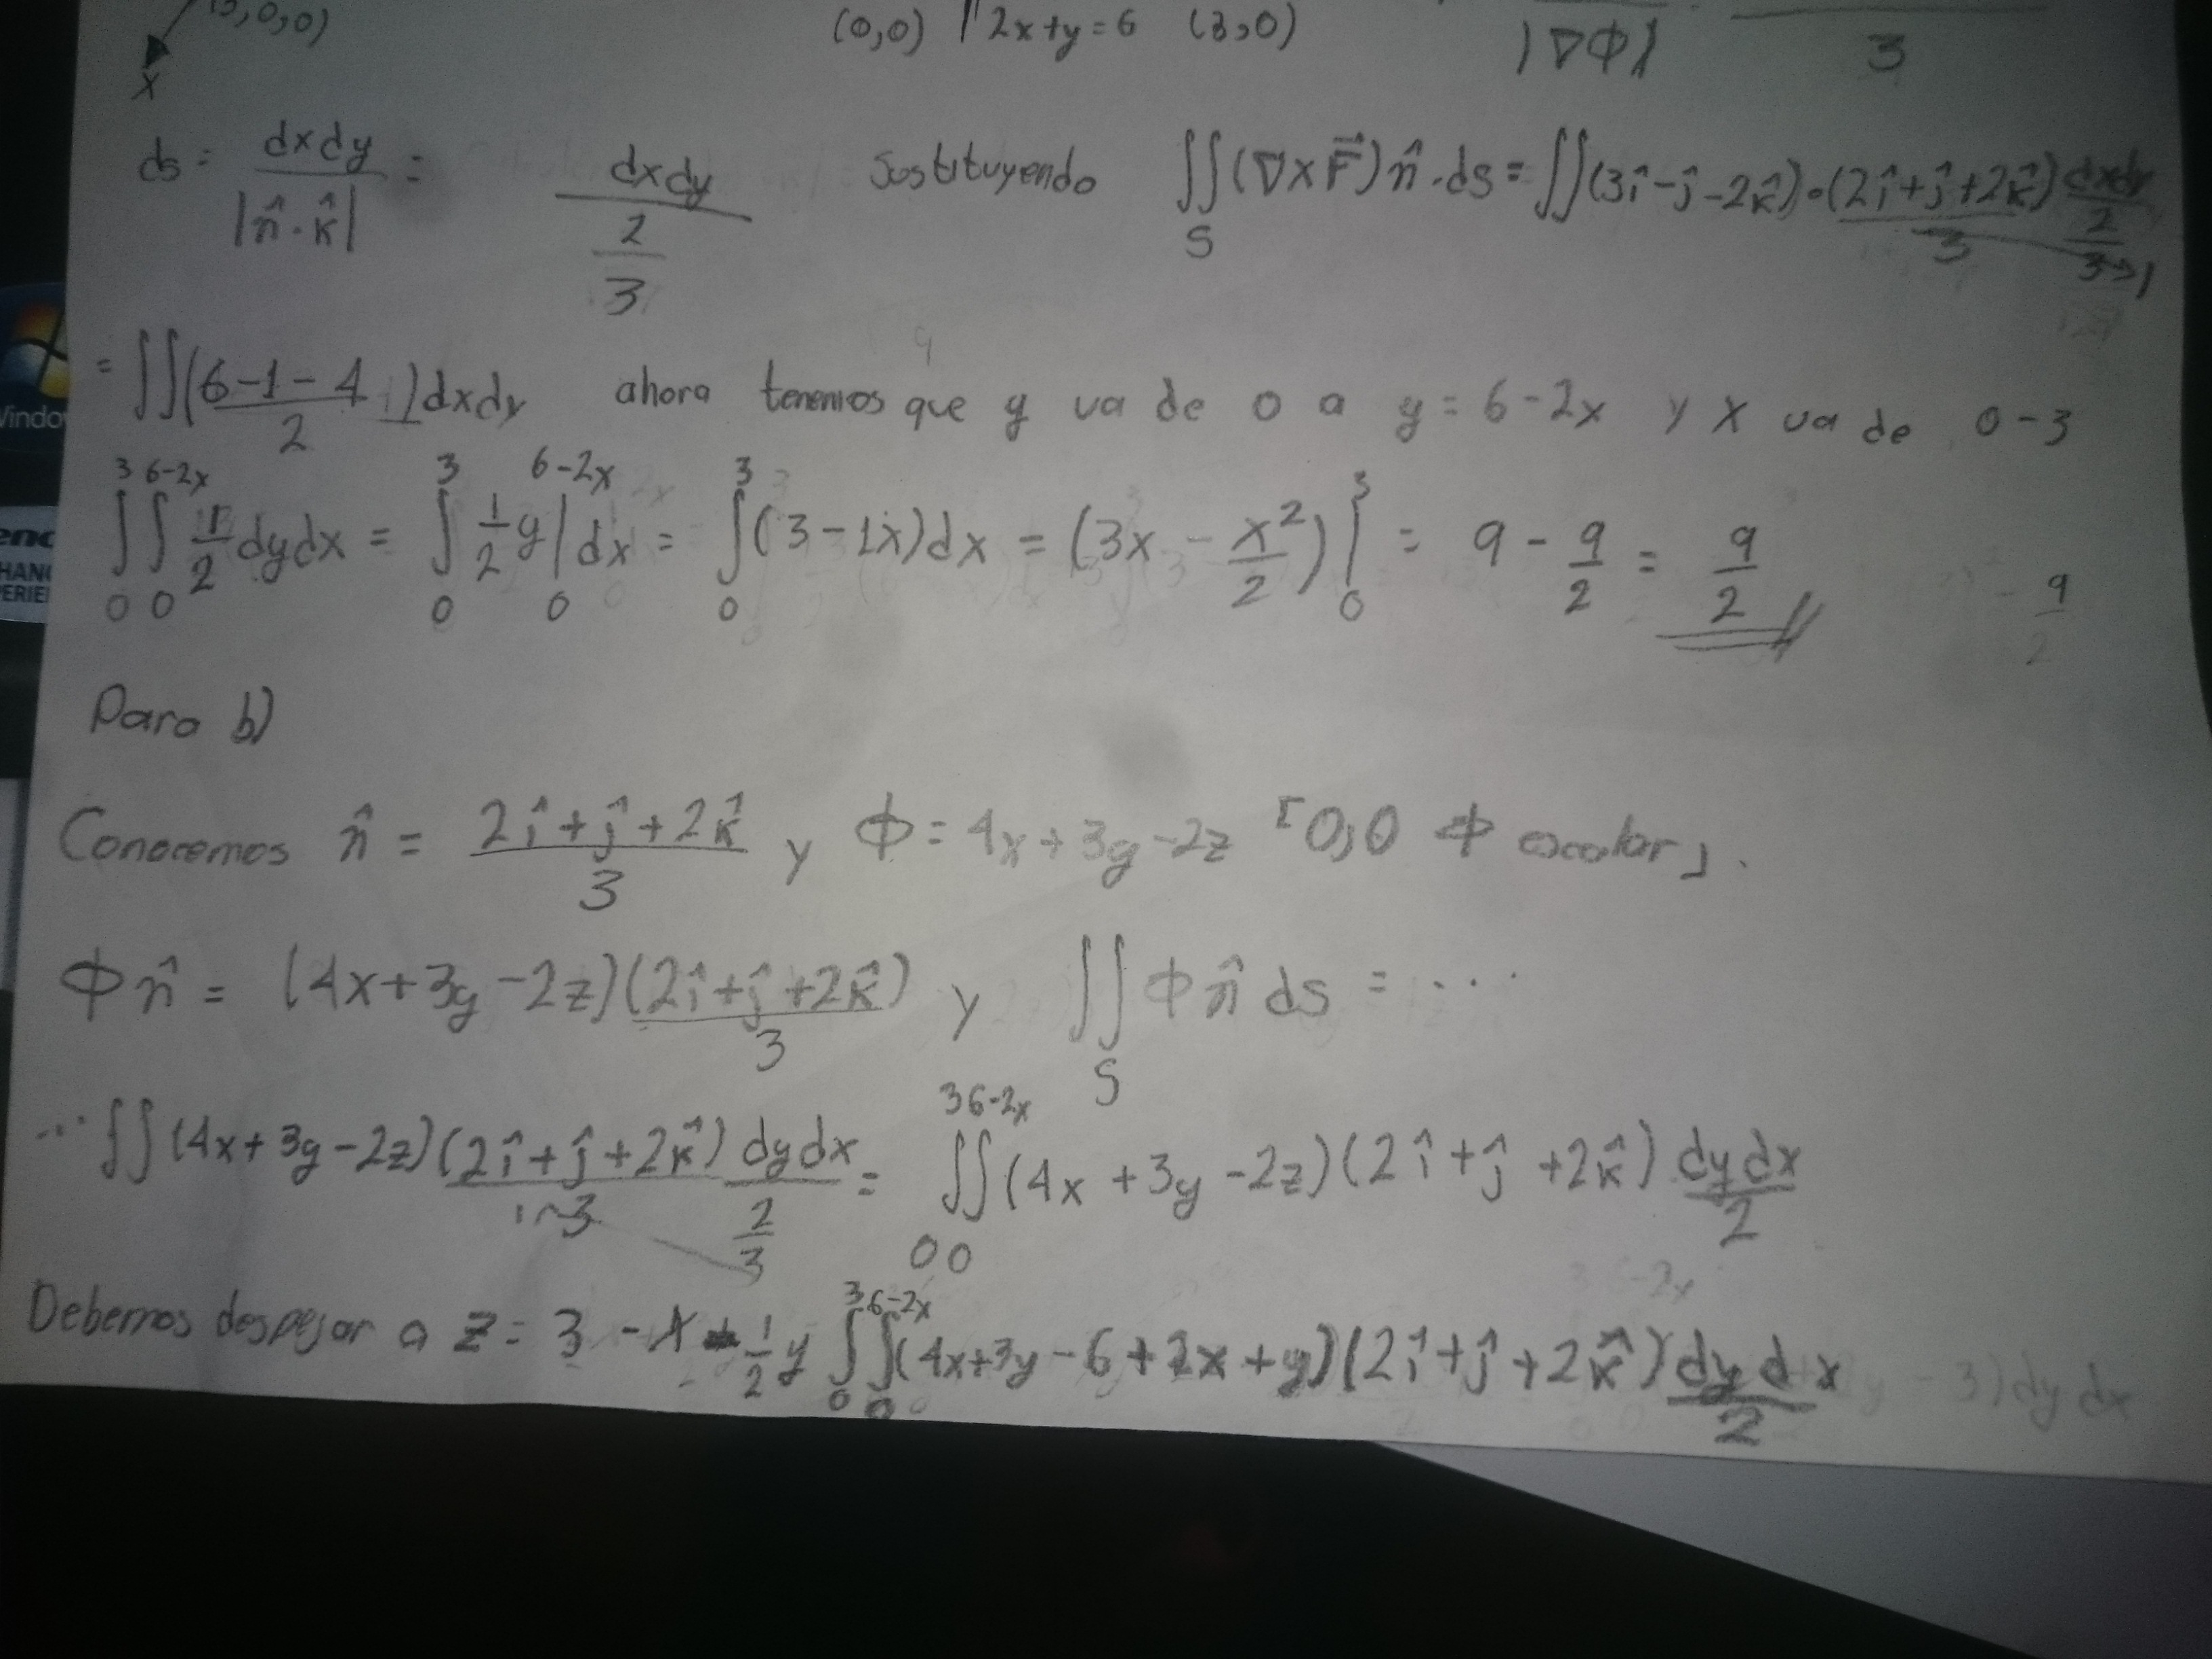 (3,0,0)
x
(0,0) 2x+y=6 (3,0)
|∇Φ| 3
ds = dxdy / |n̂·k̂| = dxdy / (2/3) Sustituyendo ∬_S (∇×F⃗) n̂·ds = ∬(3î-ĵ-2k̂)·(2î+ĵ+2k̂)/3 dxdy/(2/3) → 1
= ∬ (6-1-4)/2 dxdy ahora tenemos que y va de 0 a y = 6-2x y x va de 0-3
∫_0^3 ∫_0^{6-2x} 1/2 dydx = ∫_0^3 1/2 y |_0^{6-2x} dx = ∫_0^3 (3-1x)dx = (3x - x²/2)|_0^3 = 9 - 9/2 = 9/2
Para b)
Conocemos n̂ = (2î+ĵ+2k̂)/3 y Φ = 4x+3y-2z 「OjO Φ escalar」.
Φn̂ = (4x+3y-2z)(2î+ĵ+2k̂)/3 y ∬_S Φn̂ ds = ...
... ∬(4x+3y-2z)(2î+ĵ+2k̂)/3 dydx/(2/3) = ∫_0^3 ∫_0^{6-2x} (4x+3y-2z)(2î+ĵ+2k̂) dydx/2
Debemos despejar a z = 3 - x - 1/2 y ∫_0^3 ∫_0^{6-2x} (4x+3y-6+2x+y)(2î+ĵ+2k̂) dydx/2